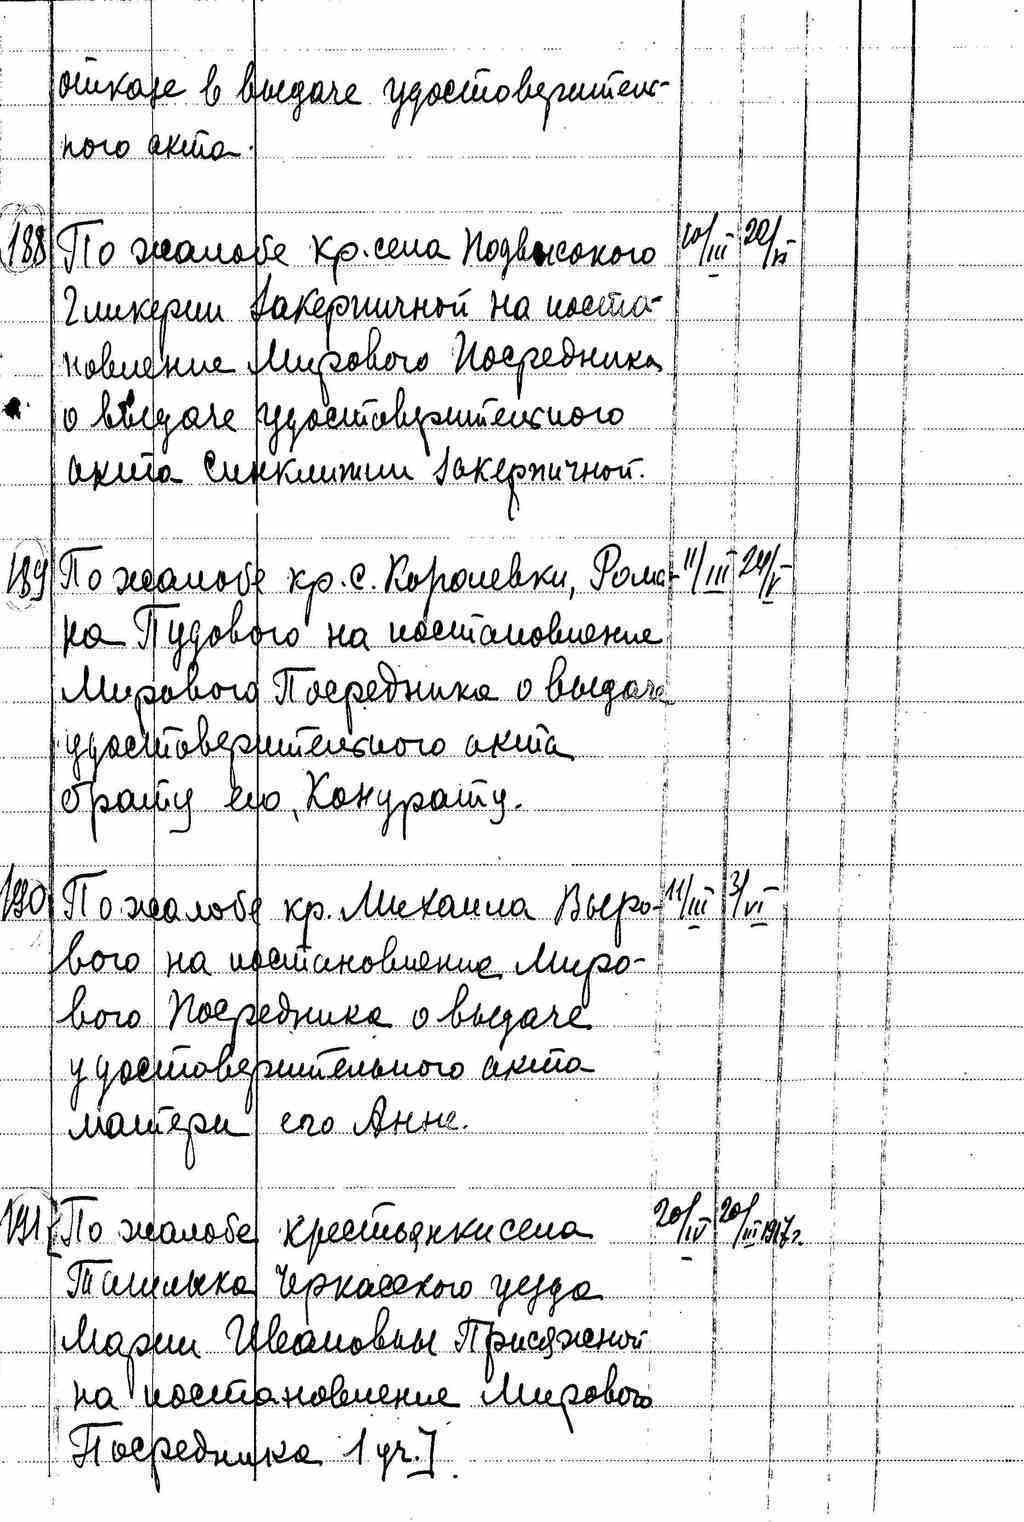 отказе в выдаче удостоверитель-
ного акта.
188 По жалобе кр. села Подвысокого 20/III 22/VI
Гликерии Закерничной на поста-
новление Мирового Посредника
о выдаче удостоверительного
акта Синклитии Закерничной.
189 По жалобе кр. с. Королевки, Рома- 11/III 24/V
на Пудового на постановление
Мирового Посредника о выдаче
удостоверительного акта
брату его, Кондрату.
190 По жалобе кр. Михаила Выро- 11/III 3/VI
вого на постановление Миро-
вого Посредника о выдаче
удостоверительного акта
матери его Анне.
191 [По жалобе крестьянки села 20/IV 20/III 1917 г.
Ташлыка Черкасского уезда
Марии Ивановны Присяжной
на постановление Мирового
Посредника 1 уч.]